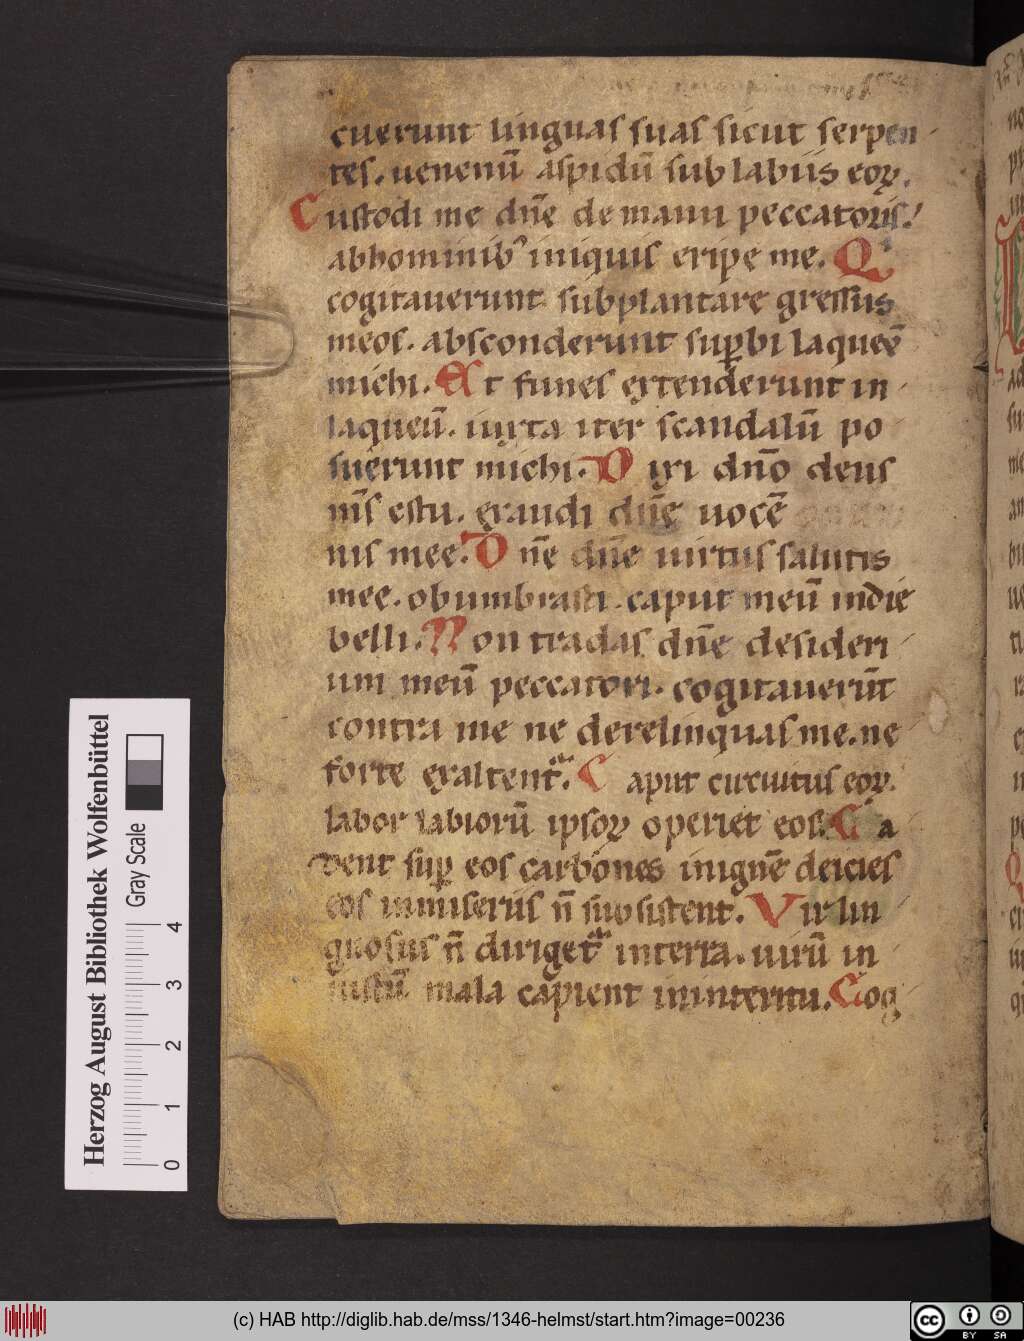 cuerunt linguas suas sicut serpen
tes. uenenū aspidū sub labiis eoꝝ.
Custodi me dn̄e de manu peccatoris.
ab hominibꝰ iniquis eripe me. Qi
cogitauerunt subplantare gressus
meos. absconderunt suꝑbi laqueū
michi. Et funes extenderunt in
laqueū. iuxta iter scandalū po
suerunt michi. Dixi dn̄o deus
m̄s es tu. exaudi dn̄e uocē
nis mee. Dn̄e dn̄e uirtus salutis
mee. obumbrasti caput meū in die
belli. Non tradas dn̄e desideri
um meū peccatori. cogitauerūt
contra me ne derelinquas me. ne
forte exaltentᷓ. Caput circuitus eoꝝ.
labor labiorū ipsoꝝ operiet eos. Ca
dent suꝑ eos carbones in ignē deicies
eos in miseriis n̄ subsistent. Vir lin
guosus n̄ dirigetᷓ in terra. uirū in
iustū mala capient in interitu. Cog
Herzog August Bibliothek Wolfenbüttel
Gray Scale
0 1 2 3 4
(c) HAB http://diglib.hab.de/mss/1346-helmst/start.htm?image=00236
cc BY SA